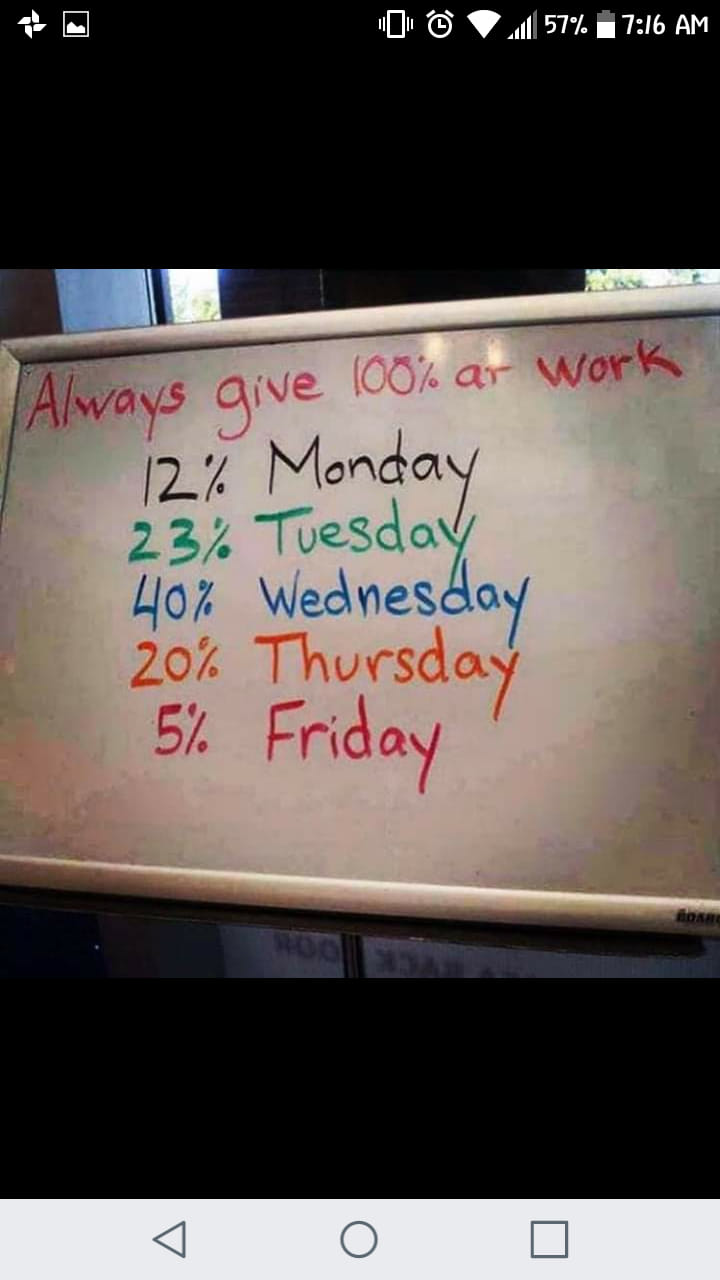 57% 7:16 AM
Always give 100% at work
12% Monday
23% Tuesday
40% Wednesday
20% Thursday
5% Friday